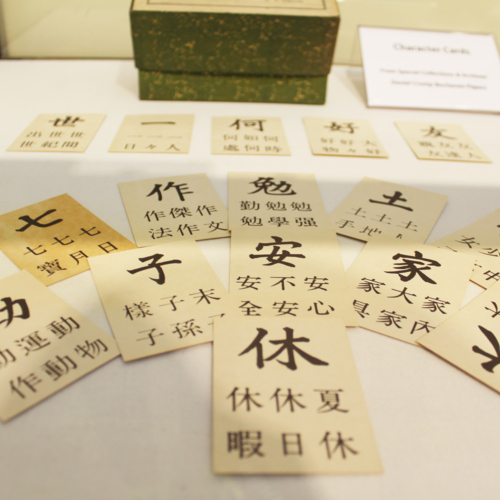 Character Cards
From Special Collections & Archives
Daniel Crump Buchanan Papers
世
出世世
世紀間
一
一一一
日々人
何
何如何
處何時
好
好好大
物々好
友
七
七七七
寶月日
作
作傑作
法作文
勉
勤勉勉
勉學强
土
土土土
子
樣子末
子孫子
安
安不安
全安心
家
家大家
具家内
運動
作動物
休
休休夏
暇日休